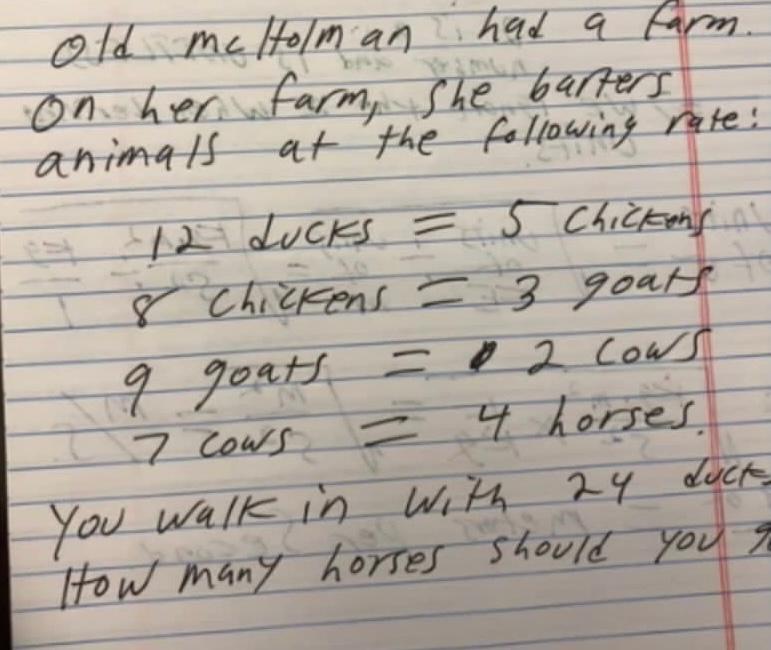 Old mcHolman had a farm.
On her farm, she barters
animals at the following rate:
12 ducks = 5 chickens
8 chickens = 3 goats
9 goats = 2 cows
7 cows = 4 horses.
You walk in with 24 ducks
How many horses should you